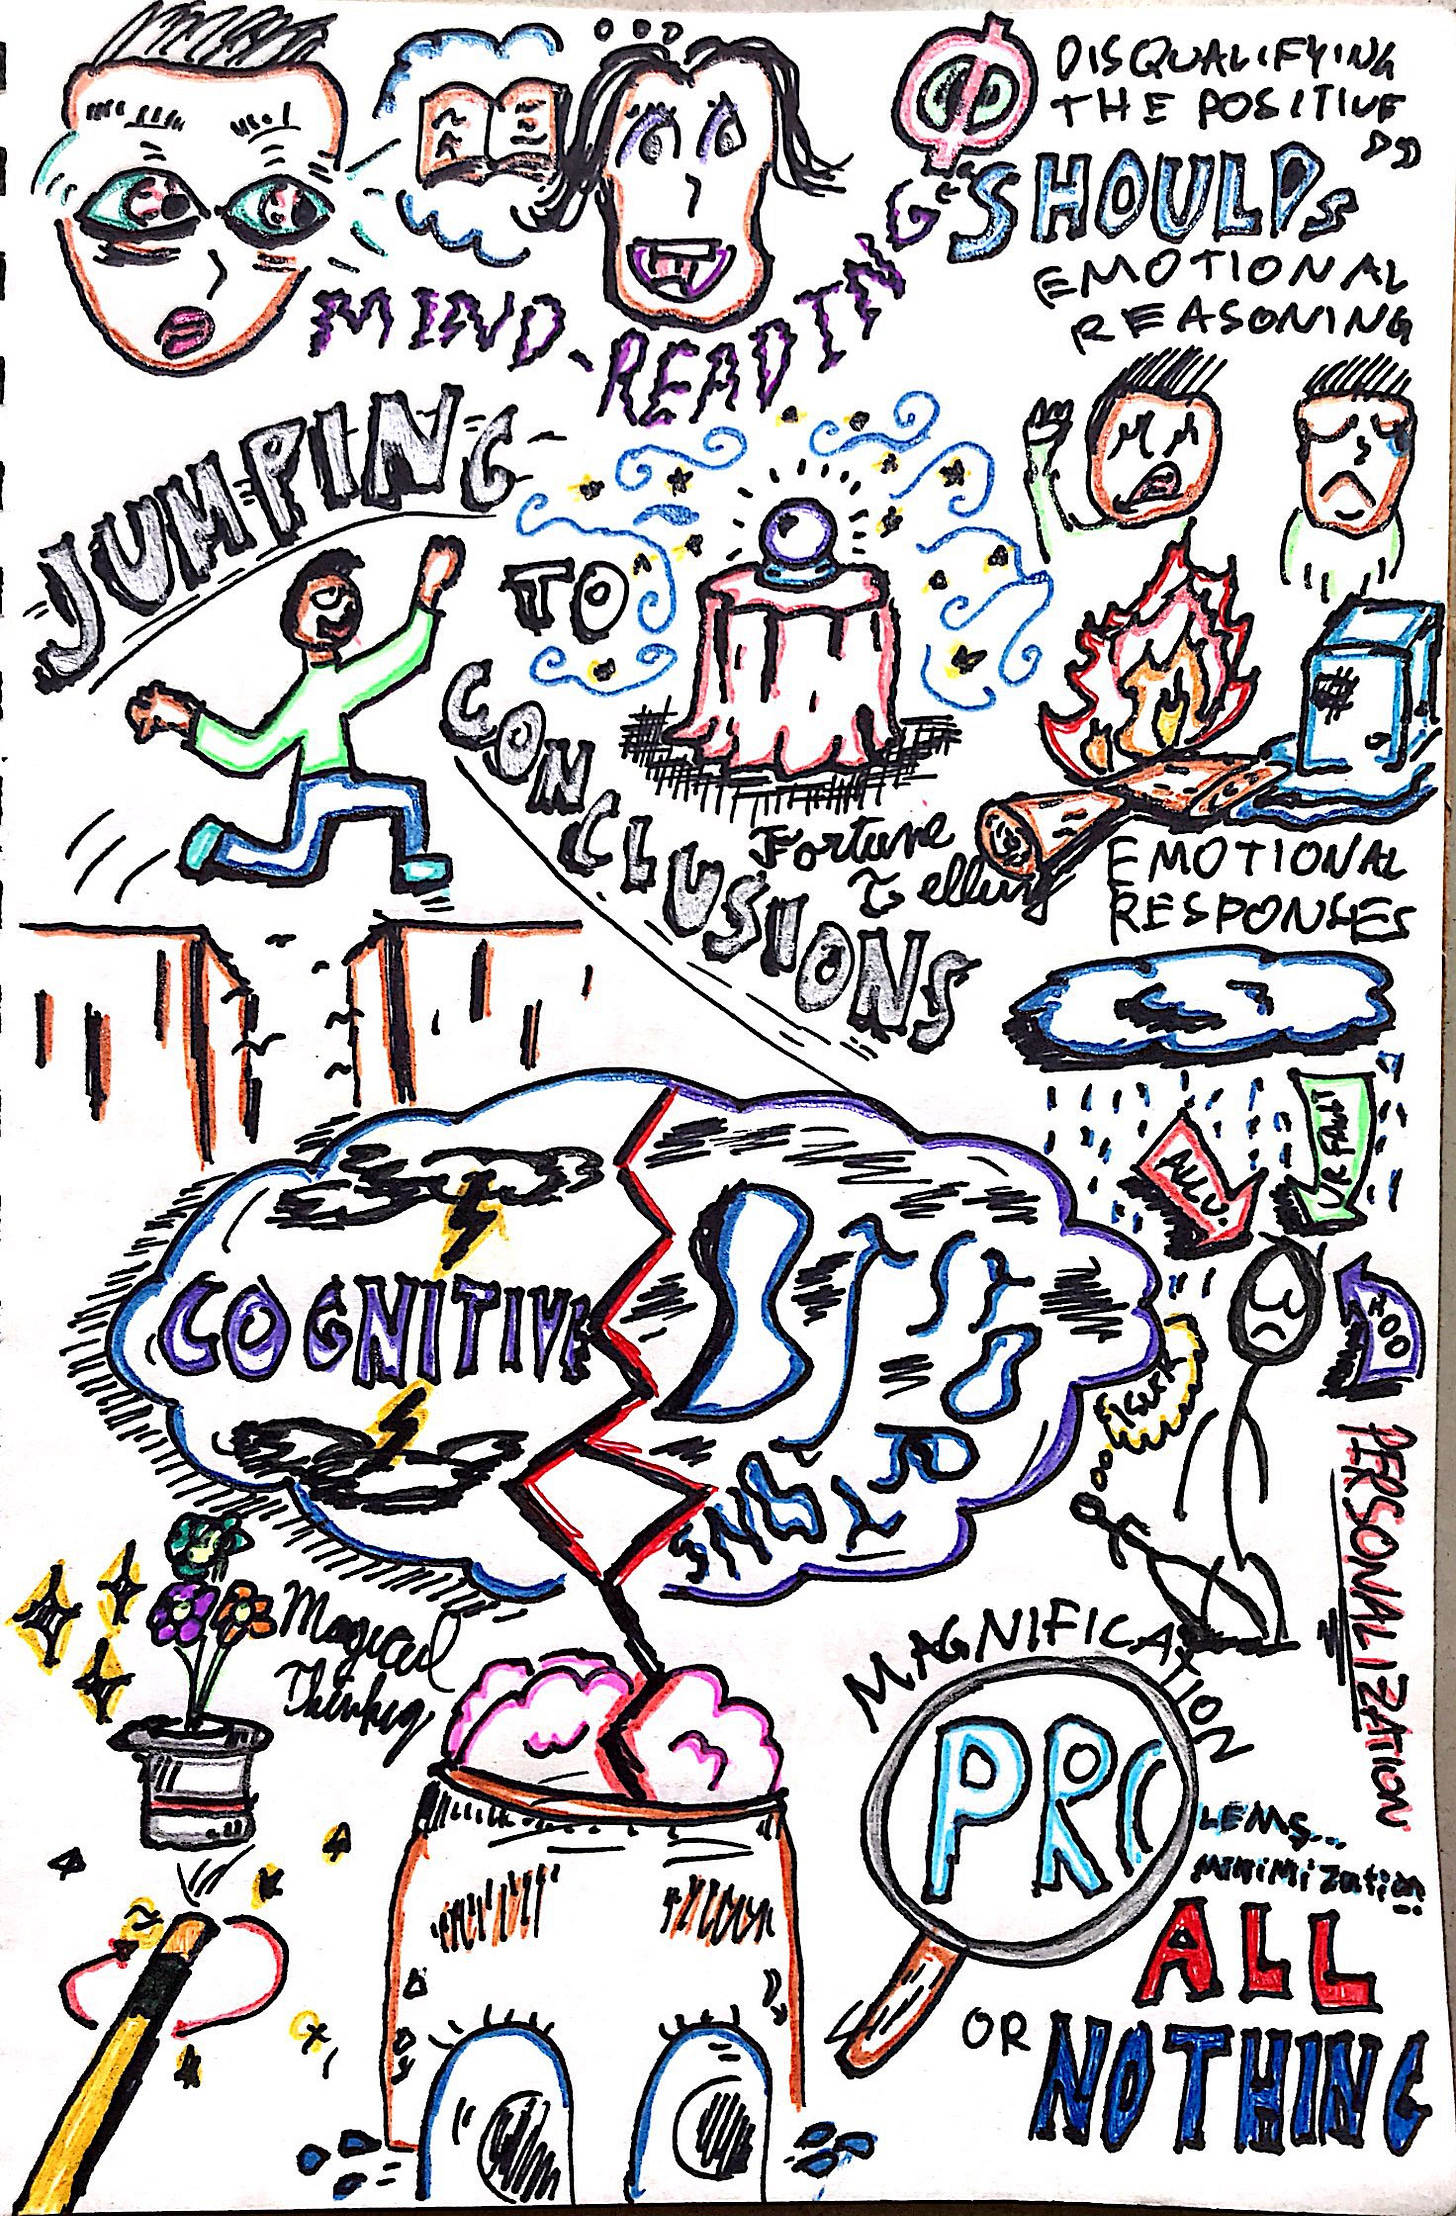 DISQUALIFYING
THE POSITIVE
"SHOULDS"
EMOTIONAL
REASONING
MIND-READING
JUMPING
TO
CONCLUSIONS
Fortune
Telling
EMOTIONAL
RESPONSES
ALL U.
UR FAULT
BOO
I SUCK
PERSONALIZATION
COGNITIVE
DISTORTIONS
Magical
Thinking
MAGNIFICATION
PRO
LEMS...
MINIMIZATION
ALL
OR NOTHING